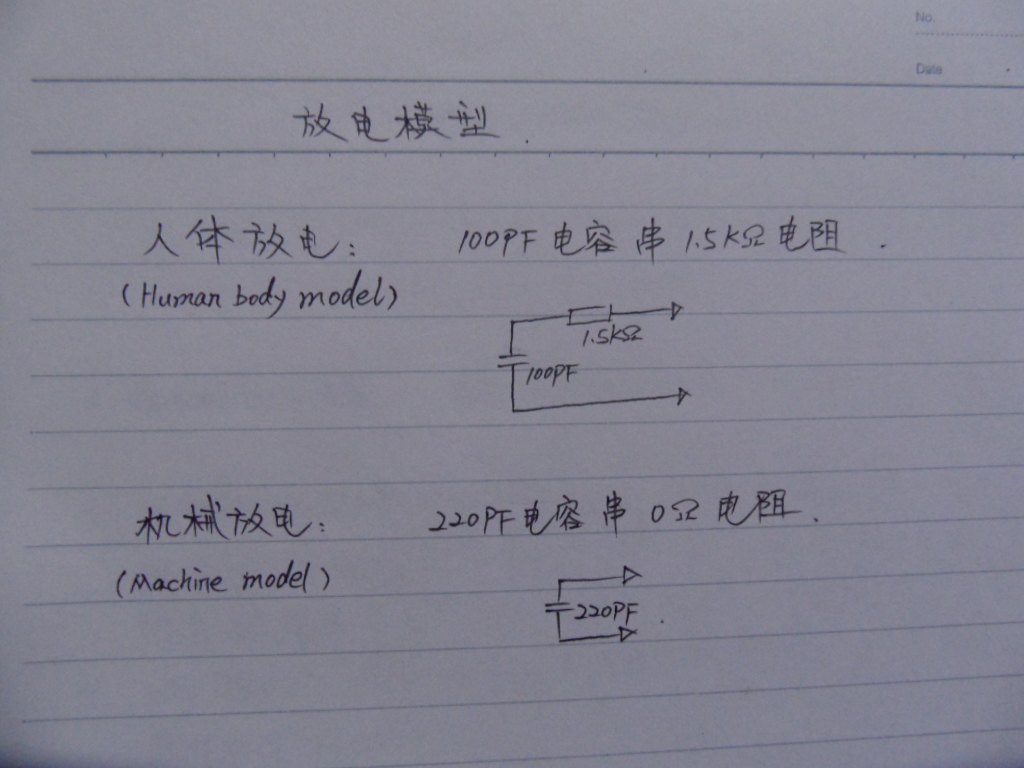 No.
Date
放电模型.
人体放电: 100PF电容串1.5KΩ电阻.
(Human body model)
1.5KΩ
100PF
机械放电: 220PF电容串0Ω电阻.
(Machine model)
220PF.